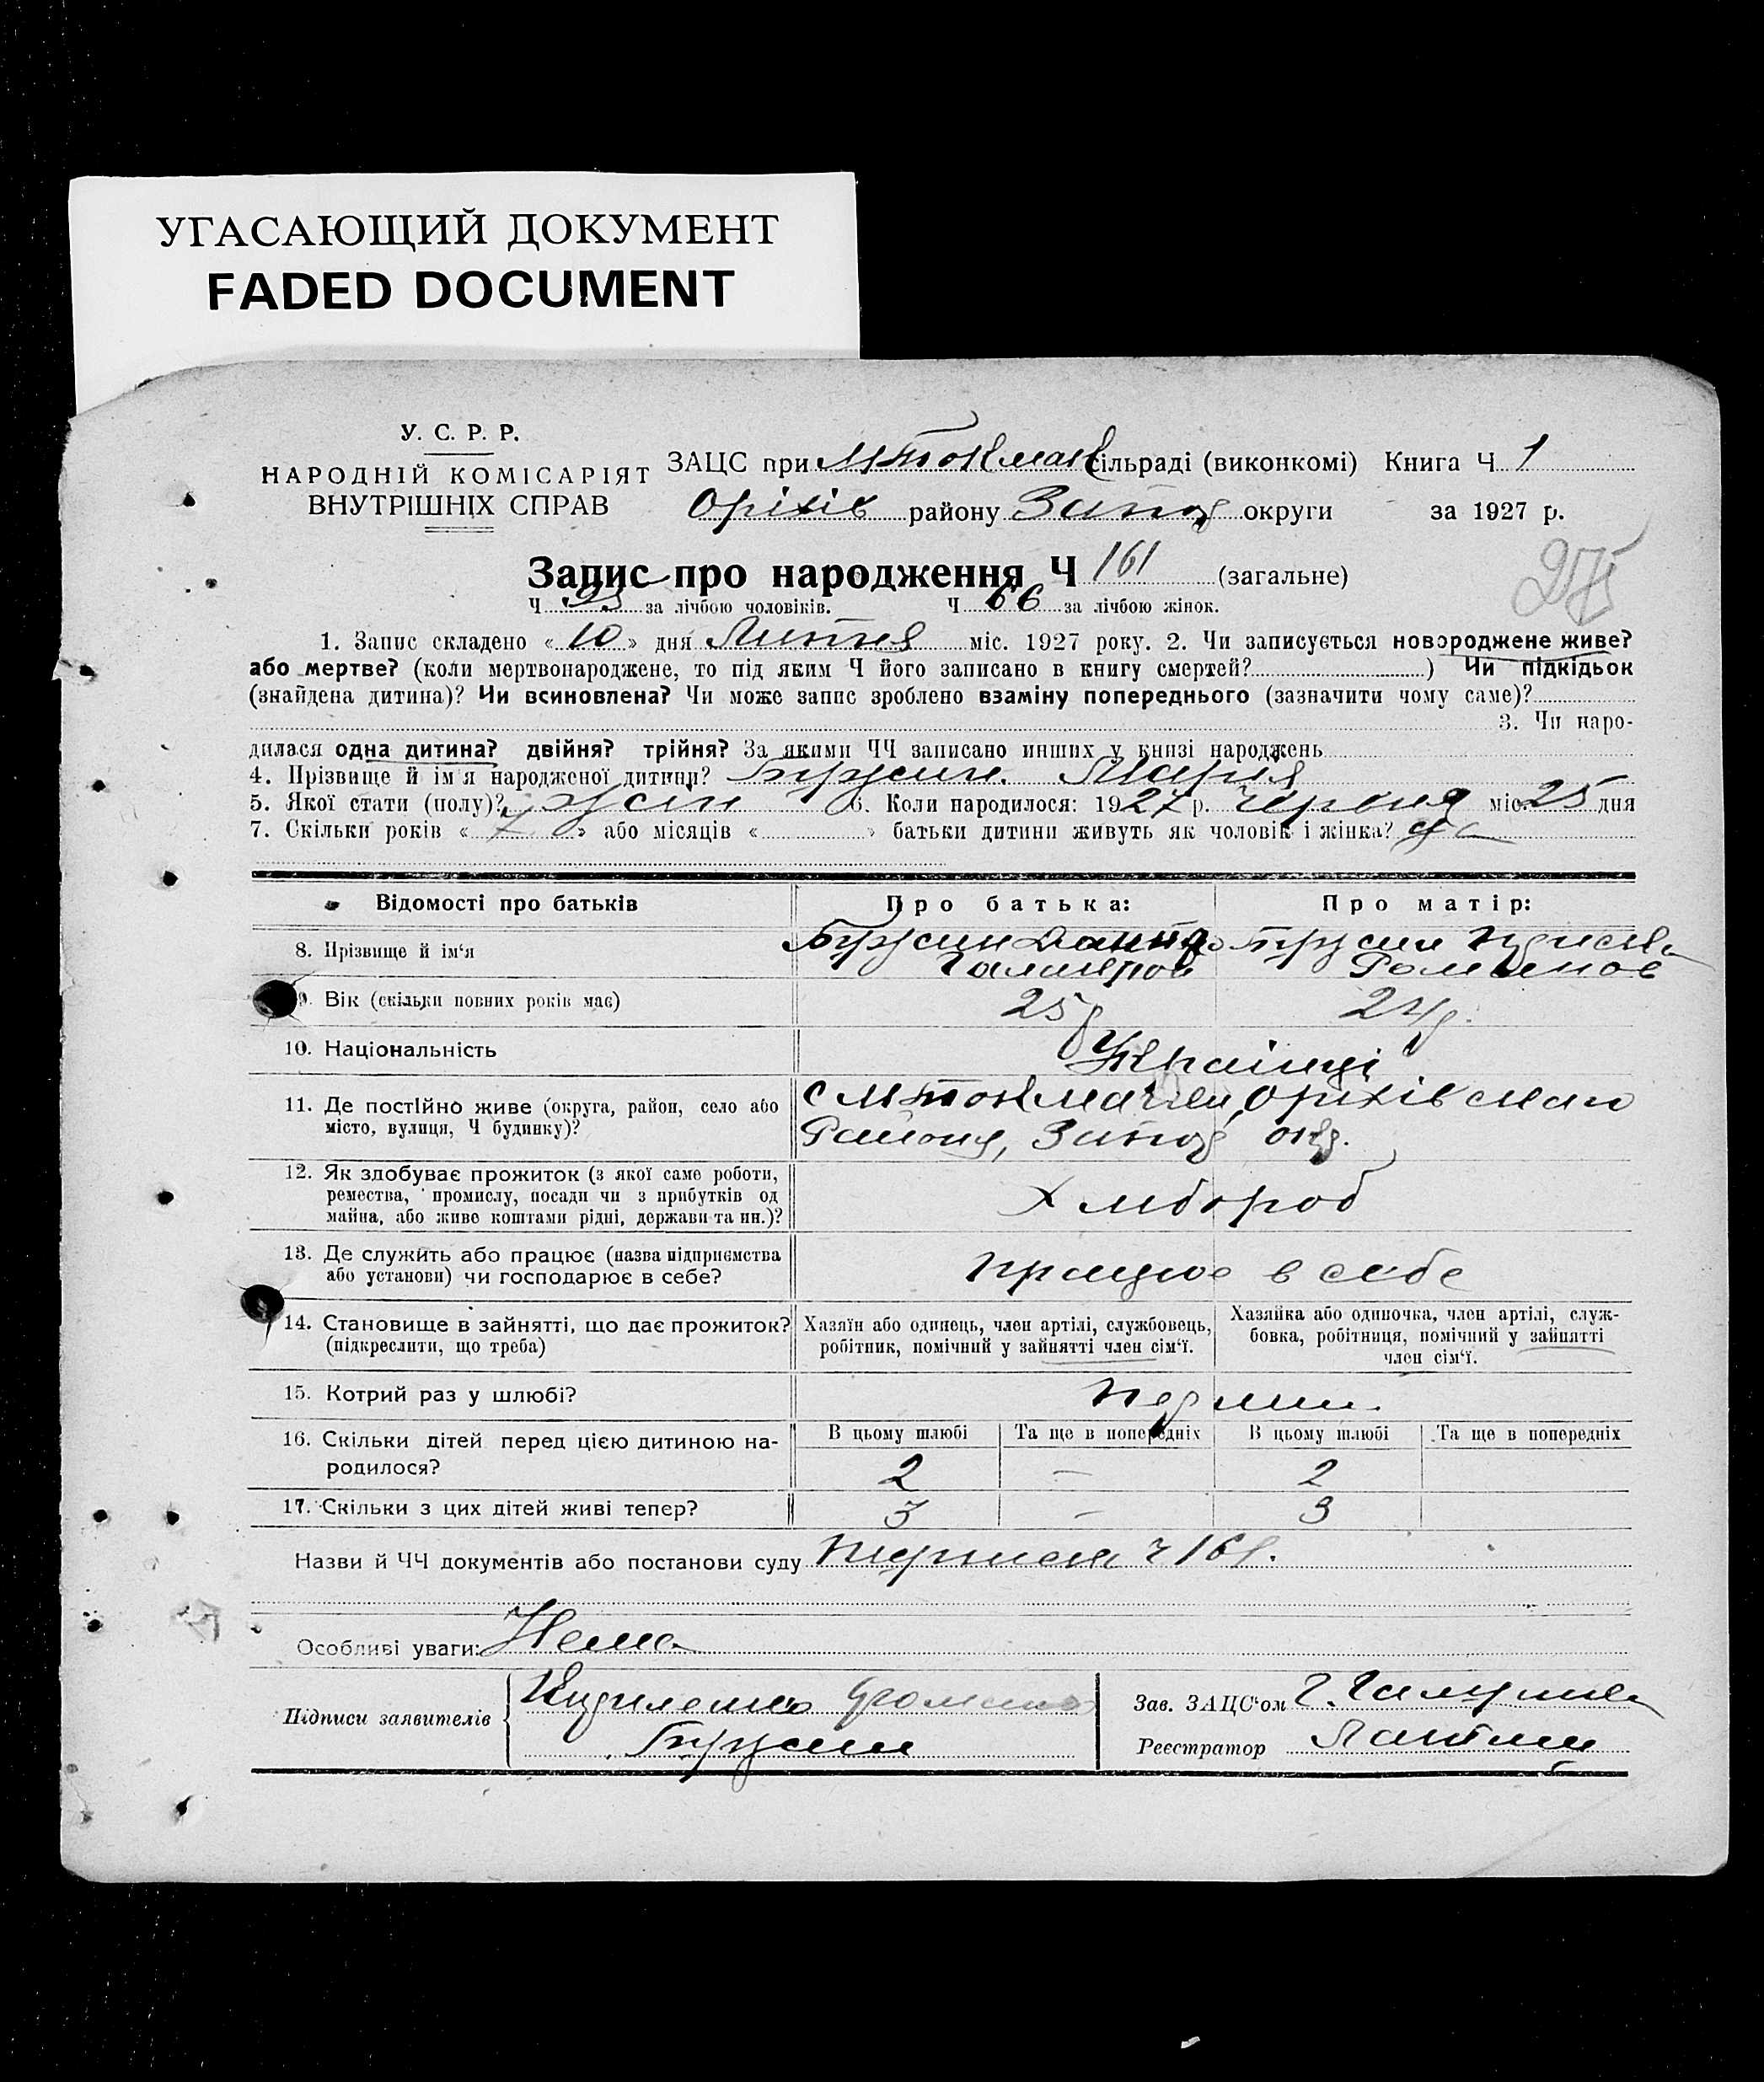 УГАСАЮЩИЙ ДОКУМЕНТ
FADED DOCUMENT
У. С. Р. Р.
НАРОДНІЙ КОМІСАРІЯТ
ВНУТРІШНІХ СПРАВ
ЗАЦС при МТокмак сільраді (виконкомі) Книга Ч 1
Оріхів району Запор округи за 1927 р.
Запис про народження Ч 161 (загальне)
275
Ч 95 за лічбою чоловіків. Ч 66 за лічбою жінок.
1. Запис складено « 10 » дня Липня міс. 1927 року. 2. Чи записується новороджене живе?
або мертве? (коли мертвонароджене, то під яким Ч його записано в книгу смертей? ) Чи підкідьок
(знайдена дитина)? Чи всиновлена? Чи може запис зроблено взаміну попереднього (зазначити чому саме)?
3. Чи наро-
дилася одна дитина? двійня? трійня? За якими ЧЧ записано инших у книзі народжень
4. Прізвище й ім'я народженої дитини? Брусин Мария
5. Якої стати (полу)? 6. Коли народилося: 1927 р. Червня міс. 25 дня
7. Скільки років « 7 » або місяців « » батьки дитини живуть як чоловік і жінка? да
Відомості про батьків Про батька: Про матір:
8. Прізвище й ім'я Брусин Брусин
Романов
9. Вік (скільки повних років має) 25 р 24 р.
10. Національність Українці
11. Де постійно живе (округа, район, село або с МТокмачки, Оріхівсько
місто, вулиця, Ч будинку)? Району, Запор окр.
12. Як здобуває прожиток (з якої саме роботи,
ремества, промислу, посади чи з прибутків од Хлібороб
майна, або живе коштами рідні, держави та ин.)?
13. Де служить або працює (назва підприємства
або установи) чи господарює в себе? працює в себе
14. Становище в зайнятті, що дає прожиток? Хазяїн або одинець, член артілі, службовець, Хазяйка або одиночка, член артілі, служ-
(підкреслити, що треба) робітник, помічний у зайнятті член сім'ї. бовка, робітниця, помічний у зайнятті
член сім'ї.
15. Котрий раз у шлюбі? перший
16. Скільки дітей перед цією дитиною на- В цьому шлюбі Та ще в попередніх В цьому шлюбі Та ще в попередніх
родилося? 2 — 2
17. Скільки з цих дітей живі тепер? 3 — 3
Назви й ЧЧ документів або постанови суду ч 161.
Особливі уваги: Нема
Підписи заявителів Зав. ЗАЦС'ом
Брусин Реєстратор